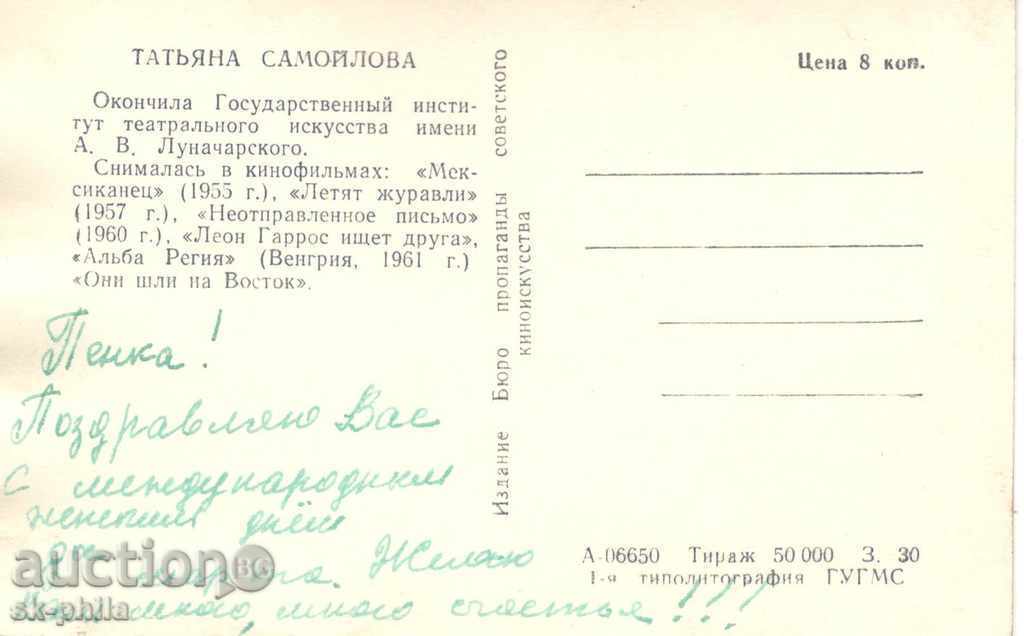 ТАТЬЯНА САМОЙЛОВА
Окончила Государственный инсти-
тут театрального искусства имени
А. В. Луначарского.
Снималась в кинофильмах: «Мек-
сиканец» (1955 г.), «Летят журавли»
(1957 г.), «Неотправленное письмо»
(1960 г.), «Леон Гаррос ищет друга»,
«Альба Регия» (Венгрия, 1961 г.)
«Они шли на Восток».
Пенка!
Поздравляю Вас
с международным
женским днём
марта. Желаю
Вам много, много счастья!!!
Издание Бюро пропаганды советского
киноискусства
Цена 8 коп.
А-06650 Тираж 50 000 З. 30
1-я типолитография ГУГМС
auction BG
sk-phila